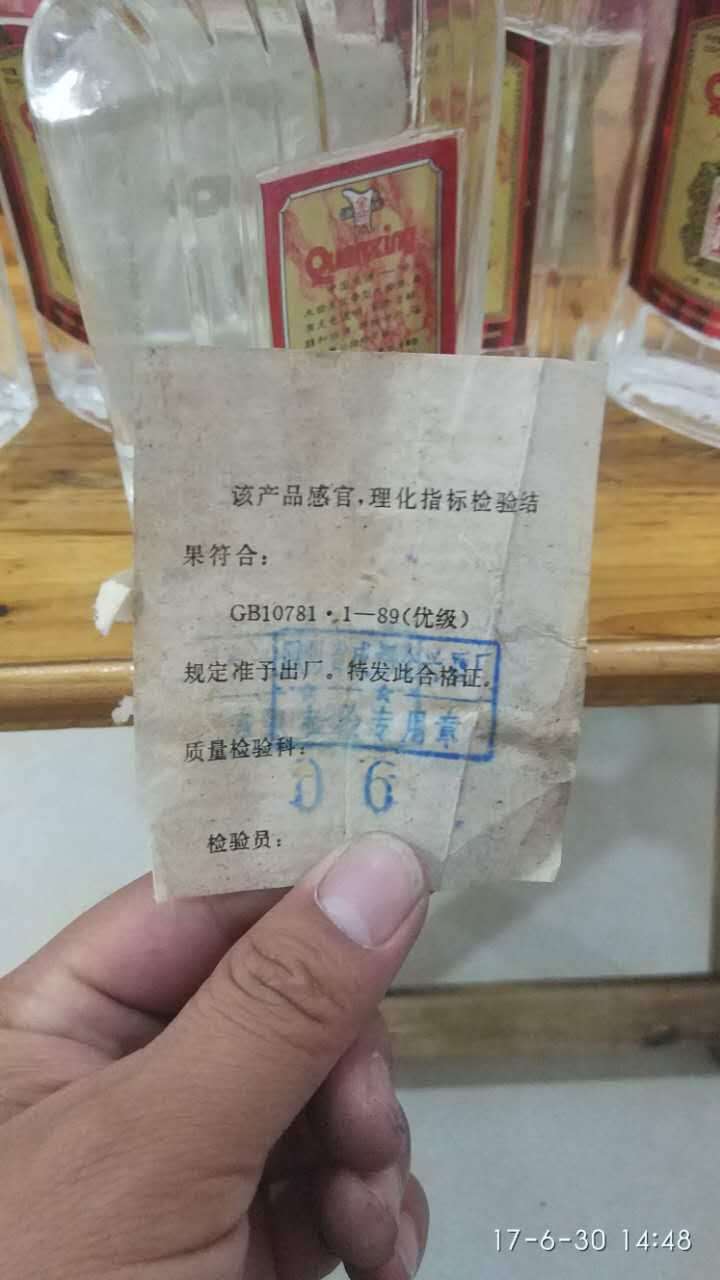 Quanxing
该产品感官,理化指标检验结
果符合:
GB10781·1—89(优级)
规定准予出厂。特发此合格证。
专用章
质量检验科:
06
检验员:
17-6-30 14:48